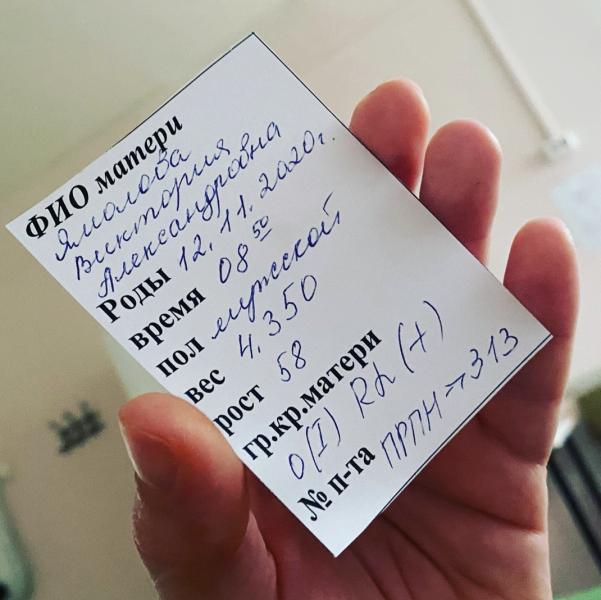 ФИО матери
Ямолова
Виктория
Александровна
Роды 12.11.2020г.
время 08 50
пол мужской
вес 4.350
рост 58
гр.кр.матери
O(I) Rh (+)
№ п-та ПРПН→313